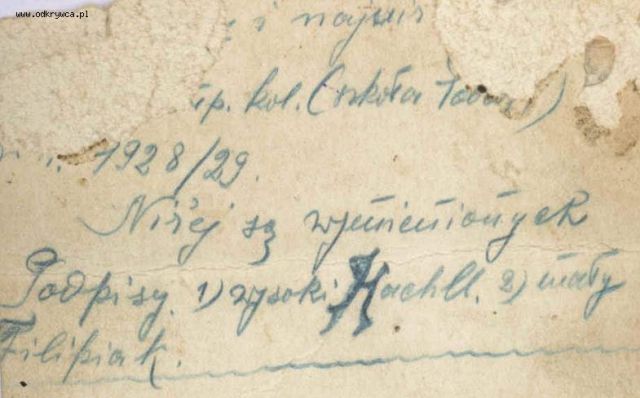 www.odkrywca.pl
i najwię
kol. (szkoła
1928/29.
Niżej są wymienionych
Podpisy. 1) wysoki Hachll. 2) mały
Filipiak.